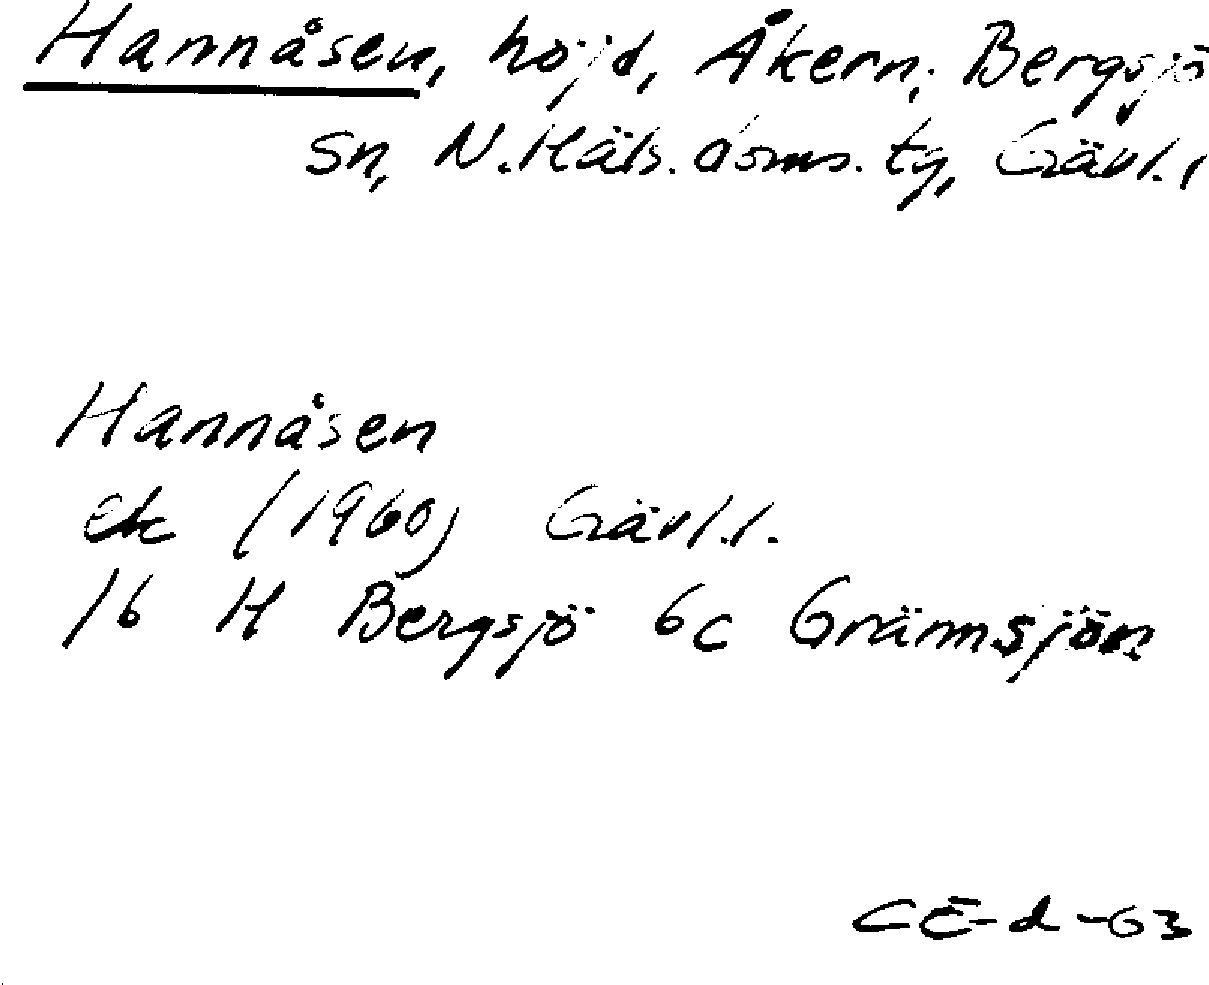 Hannåsen, höjd, Åkern, Bergsjö
sn, N. Häls. doms. tg, Gävl. l
Hannåsen
ek (1960) Gävl. l.
16 H Bergsjö 6c Grännsjön
CE-d-63